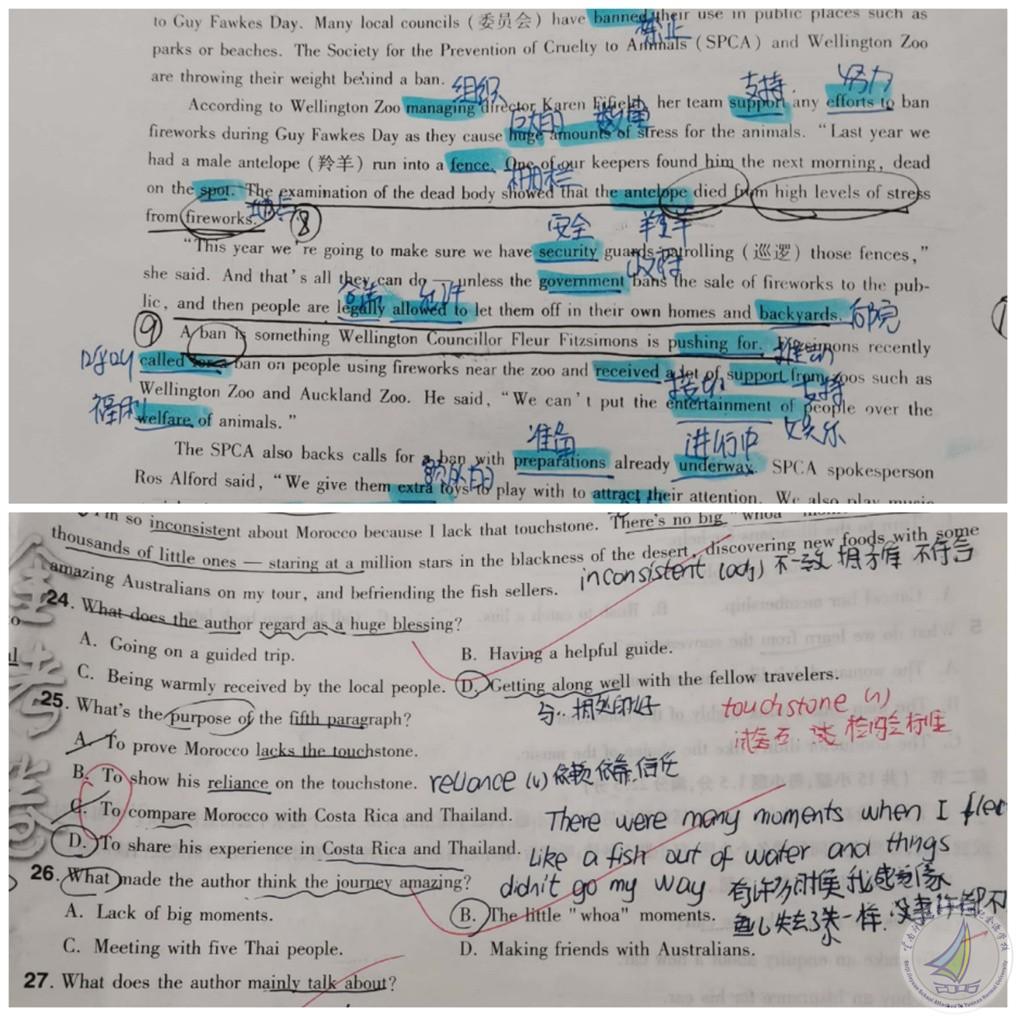 to Guy Fawkes Day. Many local councils (委员会) have banned their use in public places such as
禁止
parks or beaches. The Society for the Prevention of Cruelty to Animals (SPCA) and Wellington Zoo
are throwing their weight behind a ban.
组织 支持. 努力
According to Wellington Zoo managing director Karen Fifield, her team support any efforts to ban
巨大的 数量
fireworks during Guy Fawkes Day as they cause huge amounts of stress for the animals. "Last year we
had a male antelope (羚羊) run into a fence. One of our keepers found him the next morning, dead
栅栏
on the spot. The examination of the dead body showed that the antelope died from high levels of stress
from fireworks. ⑧
安全 羊
"This year we're going to make sure we have security guards patrolling (巡逻) those fences,"
政府
she said. And that's all they can do — unless the government bans the sale of fireworks to the pub-
合法 允许
lic, and then people are legally allowed to let them off in their own homes and backyards. 后院
⑨ A ban is something Wellington Councillor Fleur Fitzsimons is pushing for. Fitzsimons recently
推动
呼吁 called for a ban on people using fireworks near the zoo and received a lot of support from zoos such as
支持
Wellington Zoo and Auckland Zoo. He said, "We can't put the entertainment of people over the
福利 welfare of animals."
娱乐
准备 进行中
The SPCA also backs calls for a ban with preparations already underway. SPCA spokesperson
额外的
Ros Alford said, "We give them extra toys to play with to attract their attention. We also play music
I'm so inconsistent about Morocco because I lack that touchstone. There's no big "whoa"
thousands of little ones — staring at a million stars in the blackness of the desert, discovering new foods with some
amazing Australians on my tour, and befriending the fish sellers.
inconsistent (adj) 不一致 相矛盾 不符合
24. What does the author regard as a huge blessing?
A. Going on a guided trip.
B. Having a helpful guide.
C. Being warmly received by the local people.
D. Getting along well with the fellow travelers.
与..相处的好
25. What's the purpose of the fifth paragraph?
touchstone (n)
试金石 检验标准
A. To prove Morocco lacks the touchstone.
B. To show his reliance on the touchstone.
reliance (n) 依赖 依靠 信任
C. To compare Morocco with Costa Rica and Thailand.
D. To share his experience in Costa Rica and Thailand.
There were many moments when I
Like a fish out of water and things
didn't go my way 有许多时候我感觉像
鱼儿失去了水一样.
26. What made the author think the journey amazing?
A. Lack of big moments.
B. The little "whoa" moments.
C. Meeting with five Thai people.
D. Making friends with Australians.
27. What does the author mainly talk about?
全
考
卷